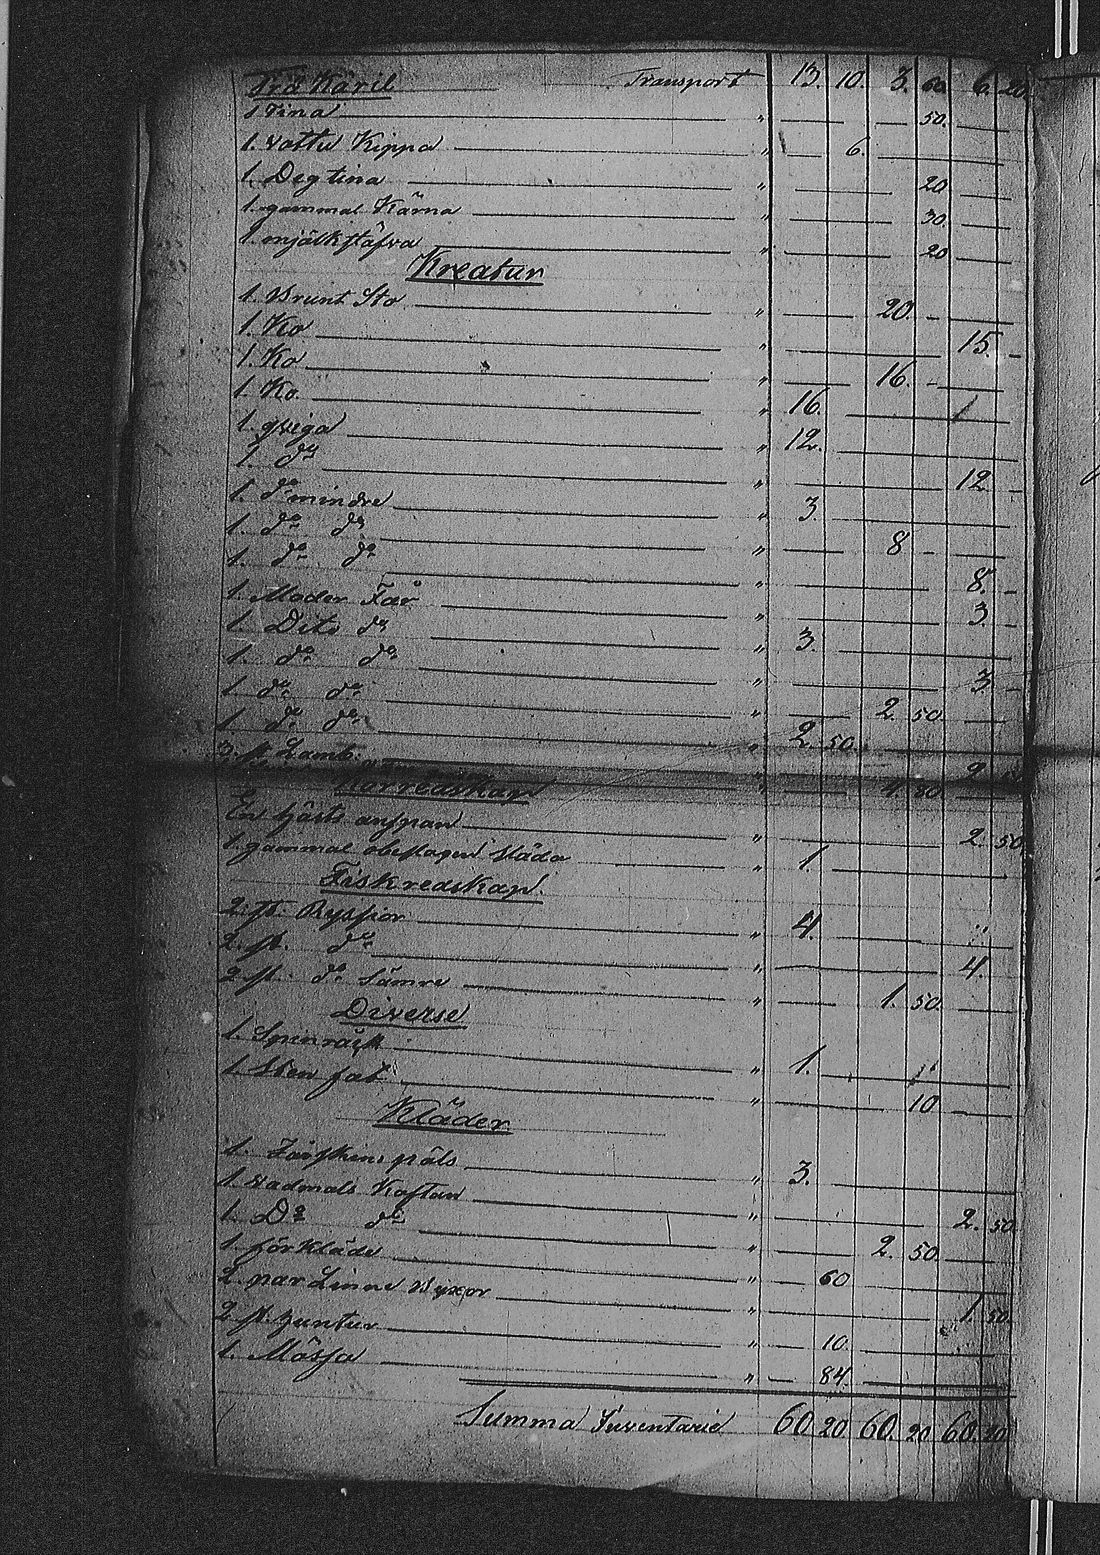 Trä Käril Transport 13. 10. 3. 60. 6. 20.
1 Tina " 50.
1. Vattu Kippa " 6.
1. Deg tina " 20
1. gammal Kärna " 30.
1. mjölkstäfva " 20
Kreatur
1. Brunt Sto " 20. -
1. Ko " 15. -
1. Ko " 16. -
1. Ko " 16.
1. qviga " 12.
1. do " 12 -
1. do mindre " 3.
1. do do " 8 -
1. do do " 8. -
1. Moder Får " 3
1. Dito do " 3.
1. do do " 3 -
1. do do " 2. 50
1. do do " 2. 50.
3. st. Lamb. " 2
Körredskap " 4. 80
En hästs anspan " 2. 50
1. gammal obeslagen släda " 1.
Fiskredskap.
2. st. Ryssjor " 4. "
2. st. do " 4.
2 st. do sämre " 1. 50.
Diverse
1. Spinråck " 1. "
1. Sten fat " 10
Kläder
1. Fårskins päls " 3.
1. Vadmals Kaftan " 2. 50
1. Do do " 2. 50
1. förkläde " 60
2. par Linne Byxor " 1. 50.
2 st. " 10.
1. Mössa " 84
Summa Inventarie 60 20 60. 20 60. 20